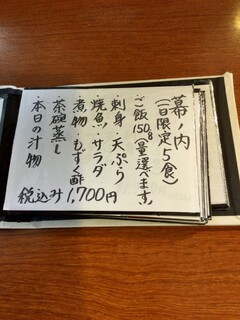 幕ノ内
(一日限定5食)
・ご飯150g(量選べます。)
・刺身・天ぷら
・焼魚・サラダ
・煮物・もずく酢
・茶碗蒸し
・本日の汁物
税込み1,700円